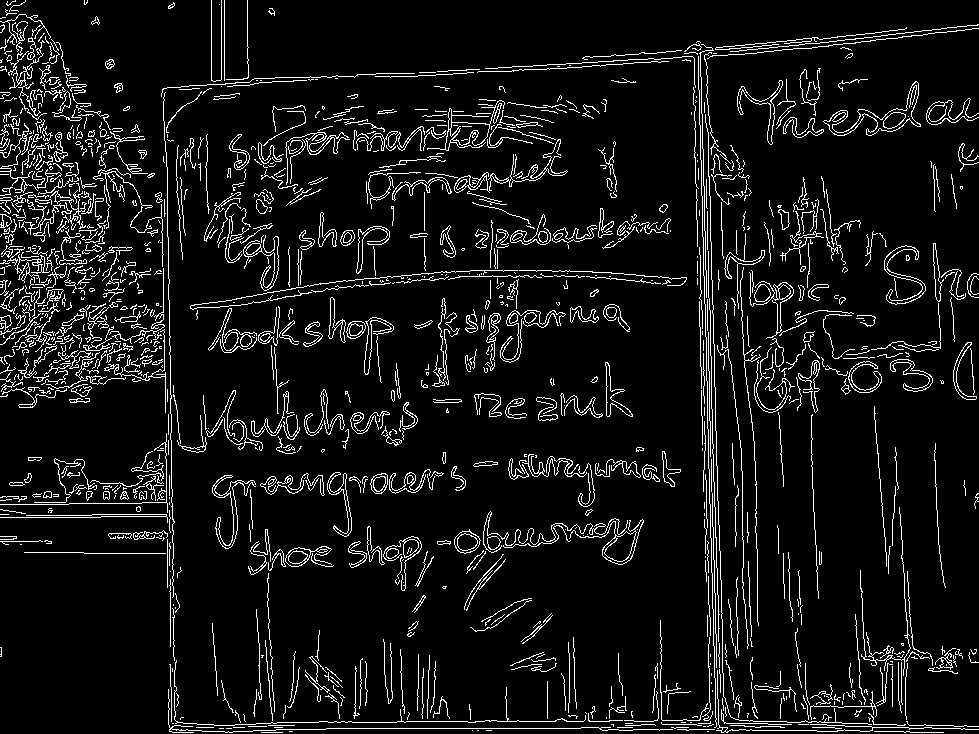 supermarket
market
toy shop - s. z zabawkami
bookshop - księgarnia
butcher's - rzeźnik
greengrocer's - warzywniak
shoe shop - obuwniczy
Tuesda
Topic: Sho
03.